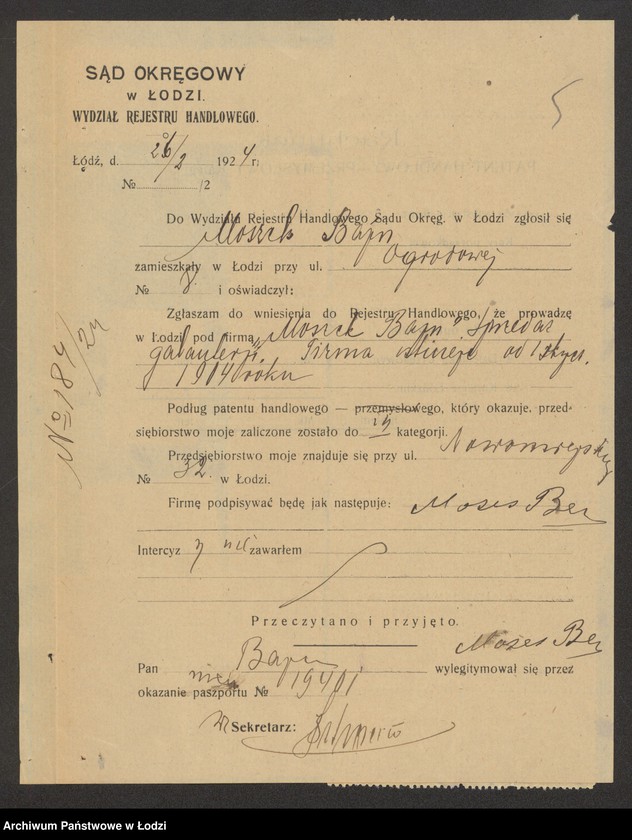 SĄD OKRĘGOWY
W ŁODZI.
WYDZIAŁ REJESTRU HANDLOWEGO.
5
Łódź, d. 26/2 1924 r.
№ /2
Do Wydziału Rejestru Handlowego Sądu Okręg. w Łodzi zgłosił się
Moszek Bajn
zamieszkały w Łodzi przy ul. Ogrodowej
№ 8 i oświadczył:
Zgłaszam do wniesienia do Rejestru Handlowego, że prowadzę
w Łodzi pod firmą „Moszek Bajn" sprzedaż
galanterji. Firma istnieje od 1 stycz.
1904 roku
№ 184/24
Podług patentu handlowego — przemysłowego, który okazuję, przed-
siębiorstwo moje zaliczone zostało do kategorji.
Przedsiębiorstwo moje znajduje się przy ul. Nowomiejskiej
№ 32 w Łodzi.
Firmę podpisywać będę jak następuje: Moses Ber
Intercyzy nie zawarłem
Przeczytano i przyjęto.
Moses Ber
Pan Bajn wylegitymował się przez
okazanie paszportu № 19401
Sekretarz:
Archiwum Państwowe w Łodzi